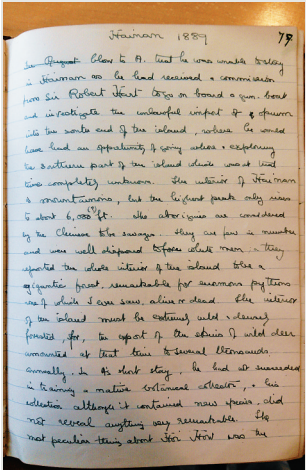 Hainan 1889
79
In August blow to A. that he was unable to stay
in Hainan as he had received a commission
from Sir Robert Hart to go on board a gun-boat
and investigate the unlawful import of opium
into the south end of the island, where he would
have had an opportunity of going where & exploring
the southern part of the island which was at that
time completely unknown. The interior of Hainan
is mountainous, but the highest peaks only rises
to about 6,000 ft. The aborigines are considered
by the Chinese to be savages. They are few in number
and were well disposed to white men & they
reported the whole interior of the island to be a
gigantic forest, remarkable for enormous pythons
one of which I ever saw, alive or dead. The interior
of the island must be extremely wild & densely
forested, for, the export of the skins of wild deer
amounted at that time to several thousands
annually. In A's short stay, he had succeeded
in training a native botanical collector, & his
collection although it contained new species, did
not reveal anything very remarkable. The
most peculiar thing about Hoi How was the